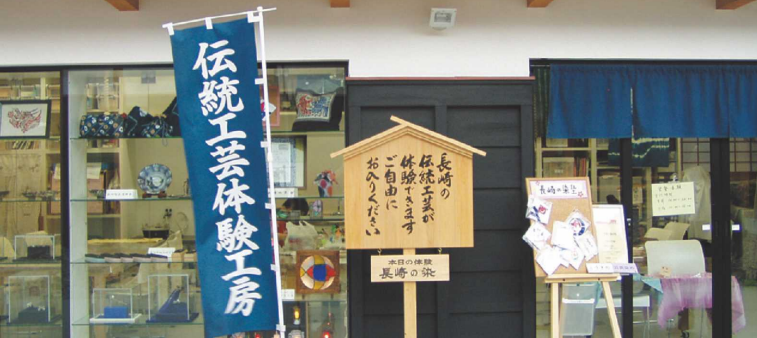 伝統工芸体験工房
長崎の
伝統工芸が
体験できます
ご自由に
お入りください
本日の体験
長崎の染
長崎の染色